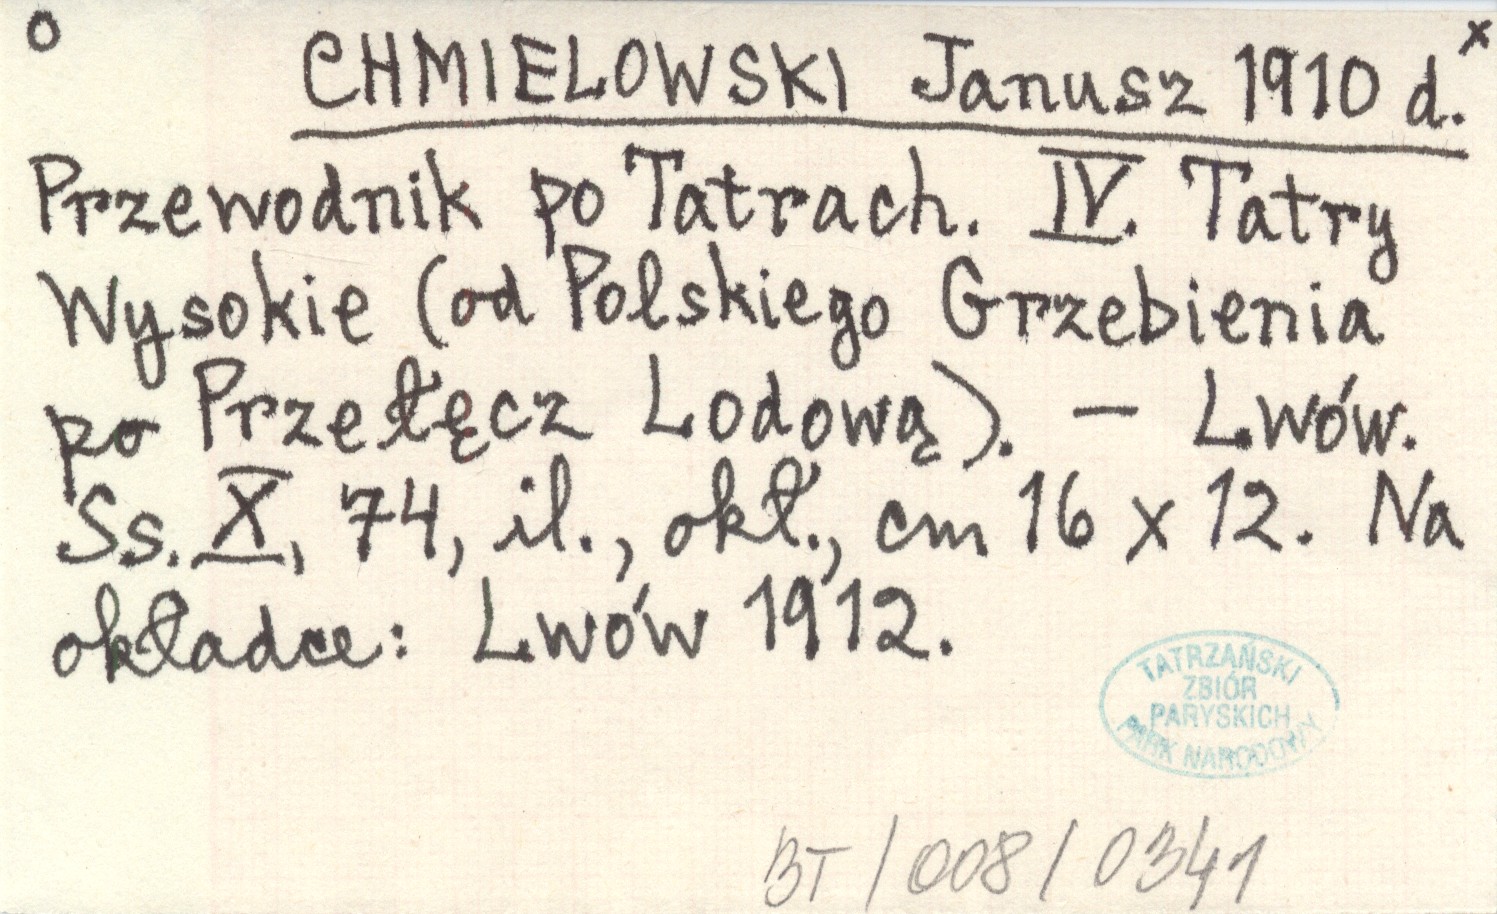 o
CHMIELOWSKI Janusz 1910 d.x
Przewodnik po Tatrach. IV. Tatry
Wysokie (od Polskiego Grzebienia
po Przełęcz Lodową). — Lwów.
Ss. X, 74, il., okł., cm 16 x 12. Na
okładce: Lwów 1912.
TATRZAŃSKI
ZBIÓR
PARYSKICH
PARK NARODOWY
BT/008/0341